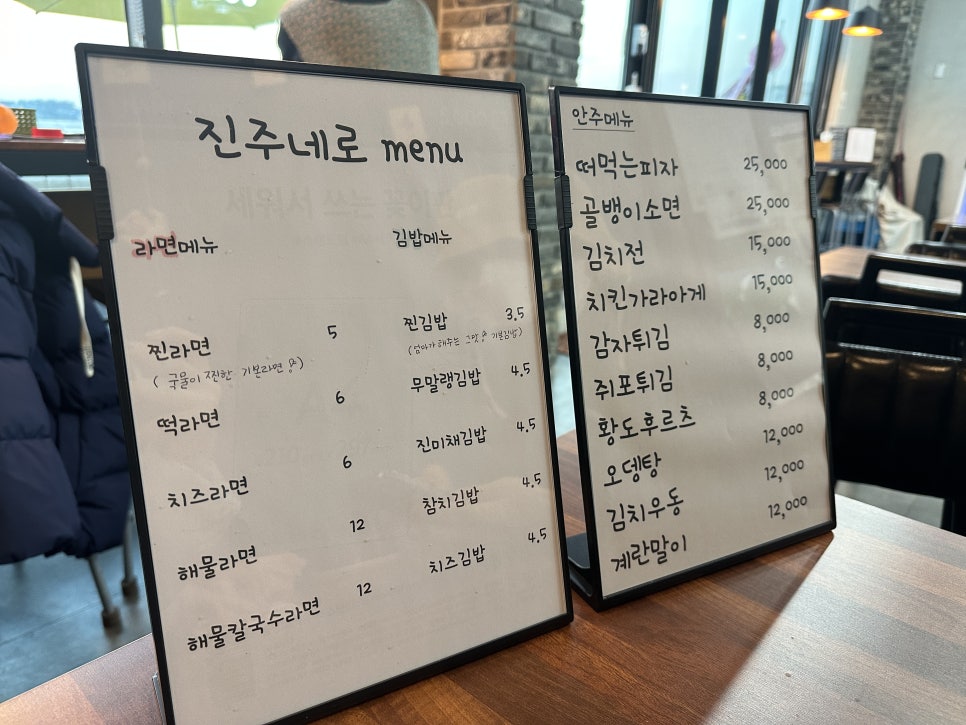 진주네로 menu
라면메뉴
찐라면 5
( 국물이 찐한 기본라면 )
떡라면 6
치즈라면 6
해물라면 12
해물칼국수라면 12
김밥메뉴
찐김밥 3.5
(엄마가 해주는 그맛 기본김밥)
무말랭김밥 4.5
진미채김밥 4.5
참치김밥 4.5
치즈김밥 4.5
안주메뉴
떠먹는피자 25,000
골뱅이소면 25,000
김치전 15,000
치킨가라아게 15,000
감자튀김 8,000
쥐포튀김 8,000
황도후르츠 8,000
오뎅탕 12,000
김치우동 12,000
계란말이 12,000